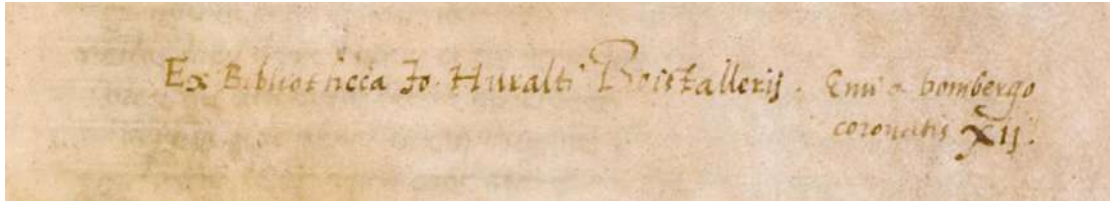 Ex Bibliotheca Jo. Huralti Boistallerij. Emi a bombergo
coronatis XIJ.